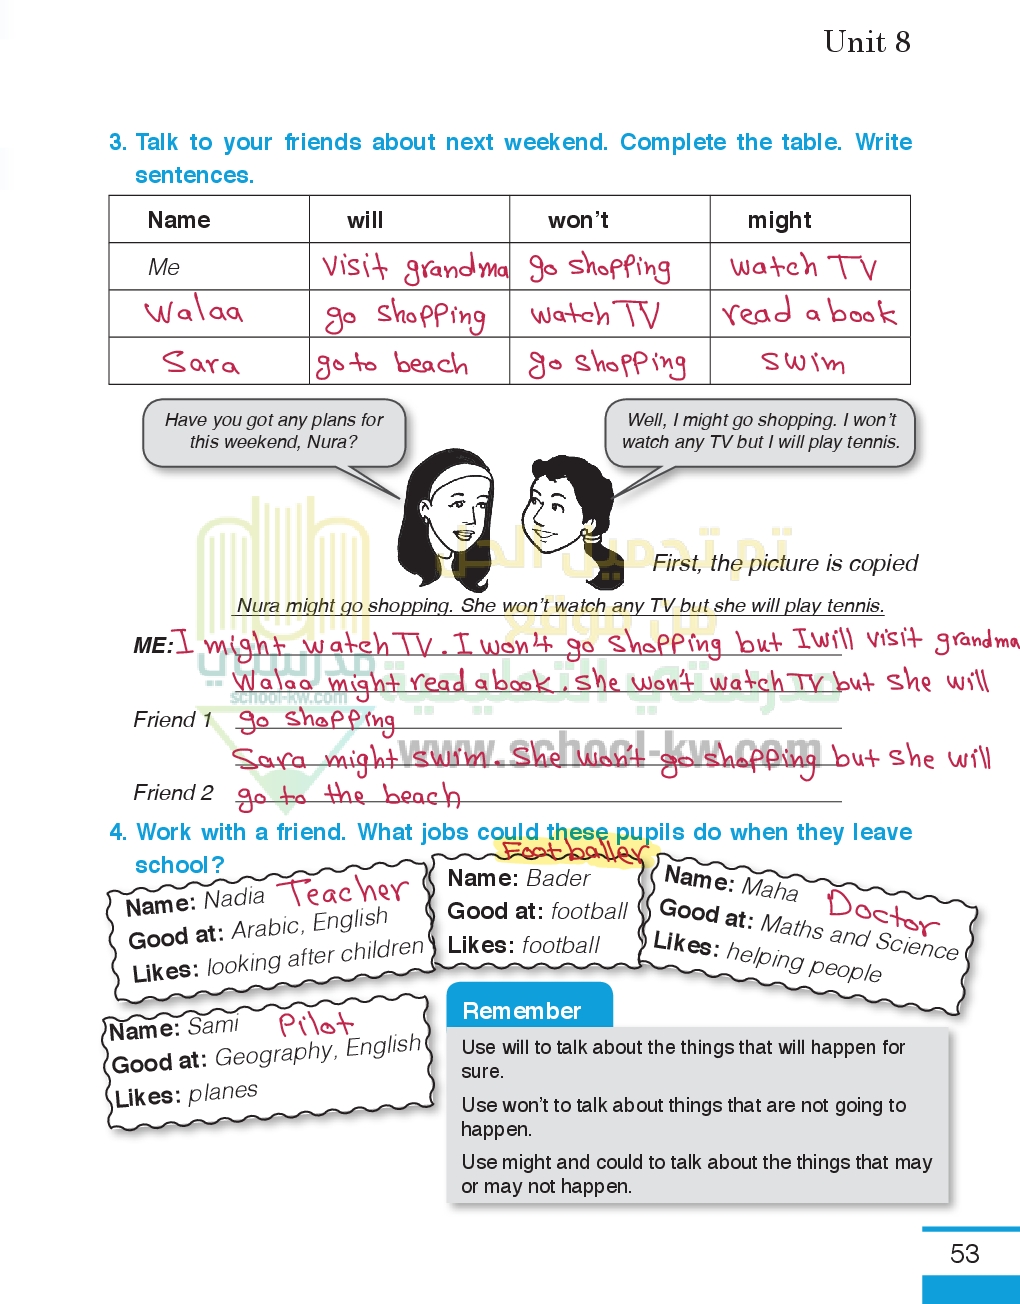 Unit 8
3. Talk to your friends about next weekend. Complete the table. Write
sentences.
Name will won't might
Me visit grandma go shopping watch TV
Walaa go shopping watch TV read a book
Sara go to beach go shopping swim
Have you got any plans for
this weekend, Nura?
Well, I might go shopping. I won't
watch any TV but I will play tennis.
تم تحميل الحل
من موقع
First, the picture is copied
Nura might go shopping. She won't watch any TV but she will play tennis.
ME: I might watch TV. I won't go shopping but I will visit grandma
مدرستي
school-kw.com
مدرستي التعليمية
Walaa might read a book. she won't watch TV but she will
Friend 1 go shopping
www.school-kw.com
Sara might swim. She won't go shopping but she will
Friend 2 go to the beach
4. Work with a friend. What jobs could these pupils do when they leave
school?
Name: Nadia Teacher
Good at: Arabic, English
Likes: looking after children
Footballer
Name: Bader
Good at: football
Likes: football
Name: Maha Doctor
Good at: Maths and Science
Likes: helping people
Name: Sami Pilot
Good at: Geography, English
Likes: planes
Remember
Use will to talk about the things that will happen for
sure.
Use won't to talk about things that are not going to
happen.
Use might and could to talk about the things that may
or may not happen.
53